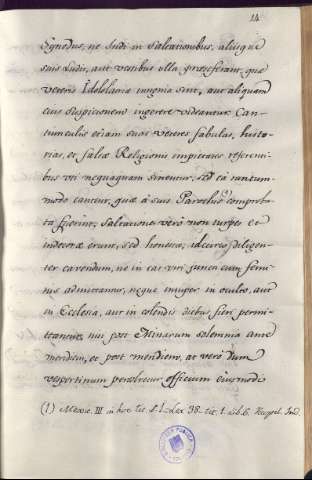 14
Synodus, ne Indi in Saltationibus, aliisque
suis Ludis, aut vestibus illa præseferant, quæ
veteris Idololatriæ insignia sint, aut aliquam
eius suspicionem ingerere videantur. Can-
tiunculis etiam suas veteres fabulas, histo-
rias, et falsæ Religionis impietates referenti-
bus uti nequaquam sinentur. Sed ea tantum-
modo cantent, quæ à suis Parochis comproba-
ta fuerint, Saltationes verò non turpes et
indecoræ erunt, sed honestæ, idcirco diligen-
ter cavendum, ne in eas viri simul cum femi-
nis admittantur, neque in occulto, aut
in Ecclesia, aut in colendis diebus fieri permi-
ttantur, nisi post Missarum solemnia ante
meridiem, et post meridiem, at verò dum
vespertinum persolvetur officium eiusmodi
(1) Mexic. III in hoc tit. §. 1. Lex 38. tit. 1. lib. 6. Recopil. Ind.